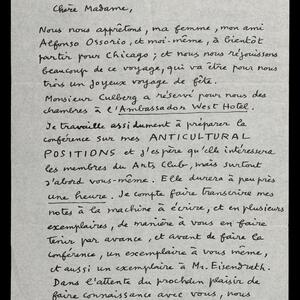 Chere Madame,
Nous nous apprêtons, ma femme, mon ami
Alfonso Ossorio, et moi-même, à bientôt
partir pour Chicago; et nous nous réjouissons
beaucoup de ce voyage, qui va être pour nous
trois un joyeux voyage de fête.
Monsieur Culberg a réservé pour nous des
chambres à l'Ambassador West Hotel.
Je travaille assidument à préparer la
conférence sur mes ANTICULTURAL
POSITIONS et j'espère qu'elle intéressera
les membres du Arts Club, mais surtout
d'abord vous-même. Elle durera à peu près
une heure. Je compte faire transcrire mes
notes à la machine à écrire, et en plusieurs
exemplaires, de manière à vous en faire
tenir par avance, et avant de faire la
conférence, un exemplaire à vous même,
et aussi un exemplaire à Mr. Eisendrath.
Dans l'attente du prochain plaisir de
faire connaissance avec vous, nous